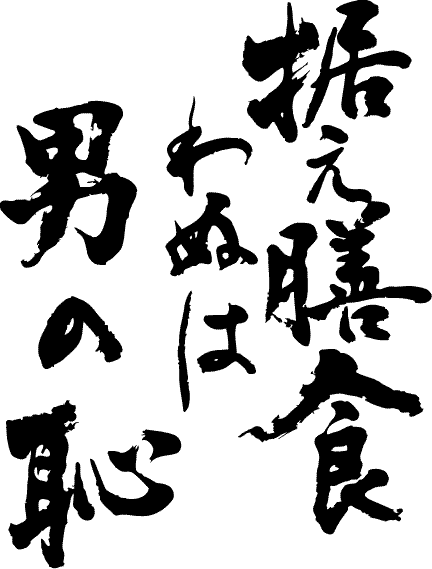 据え膳食
わぬは
男の恥